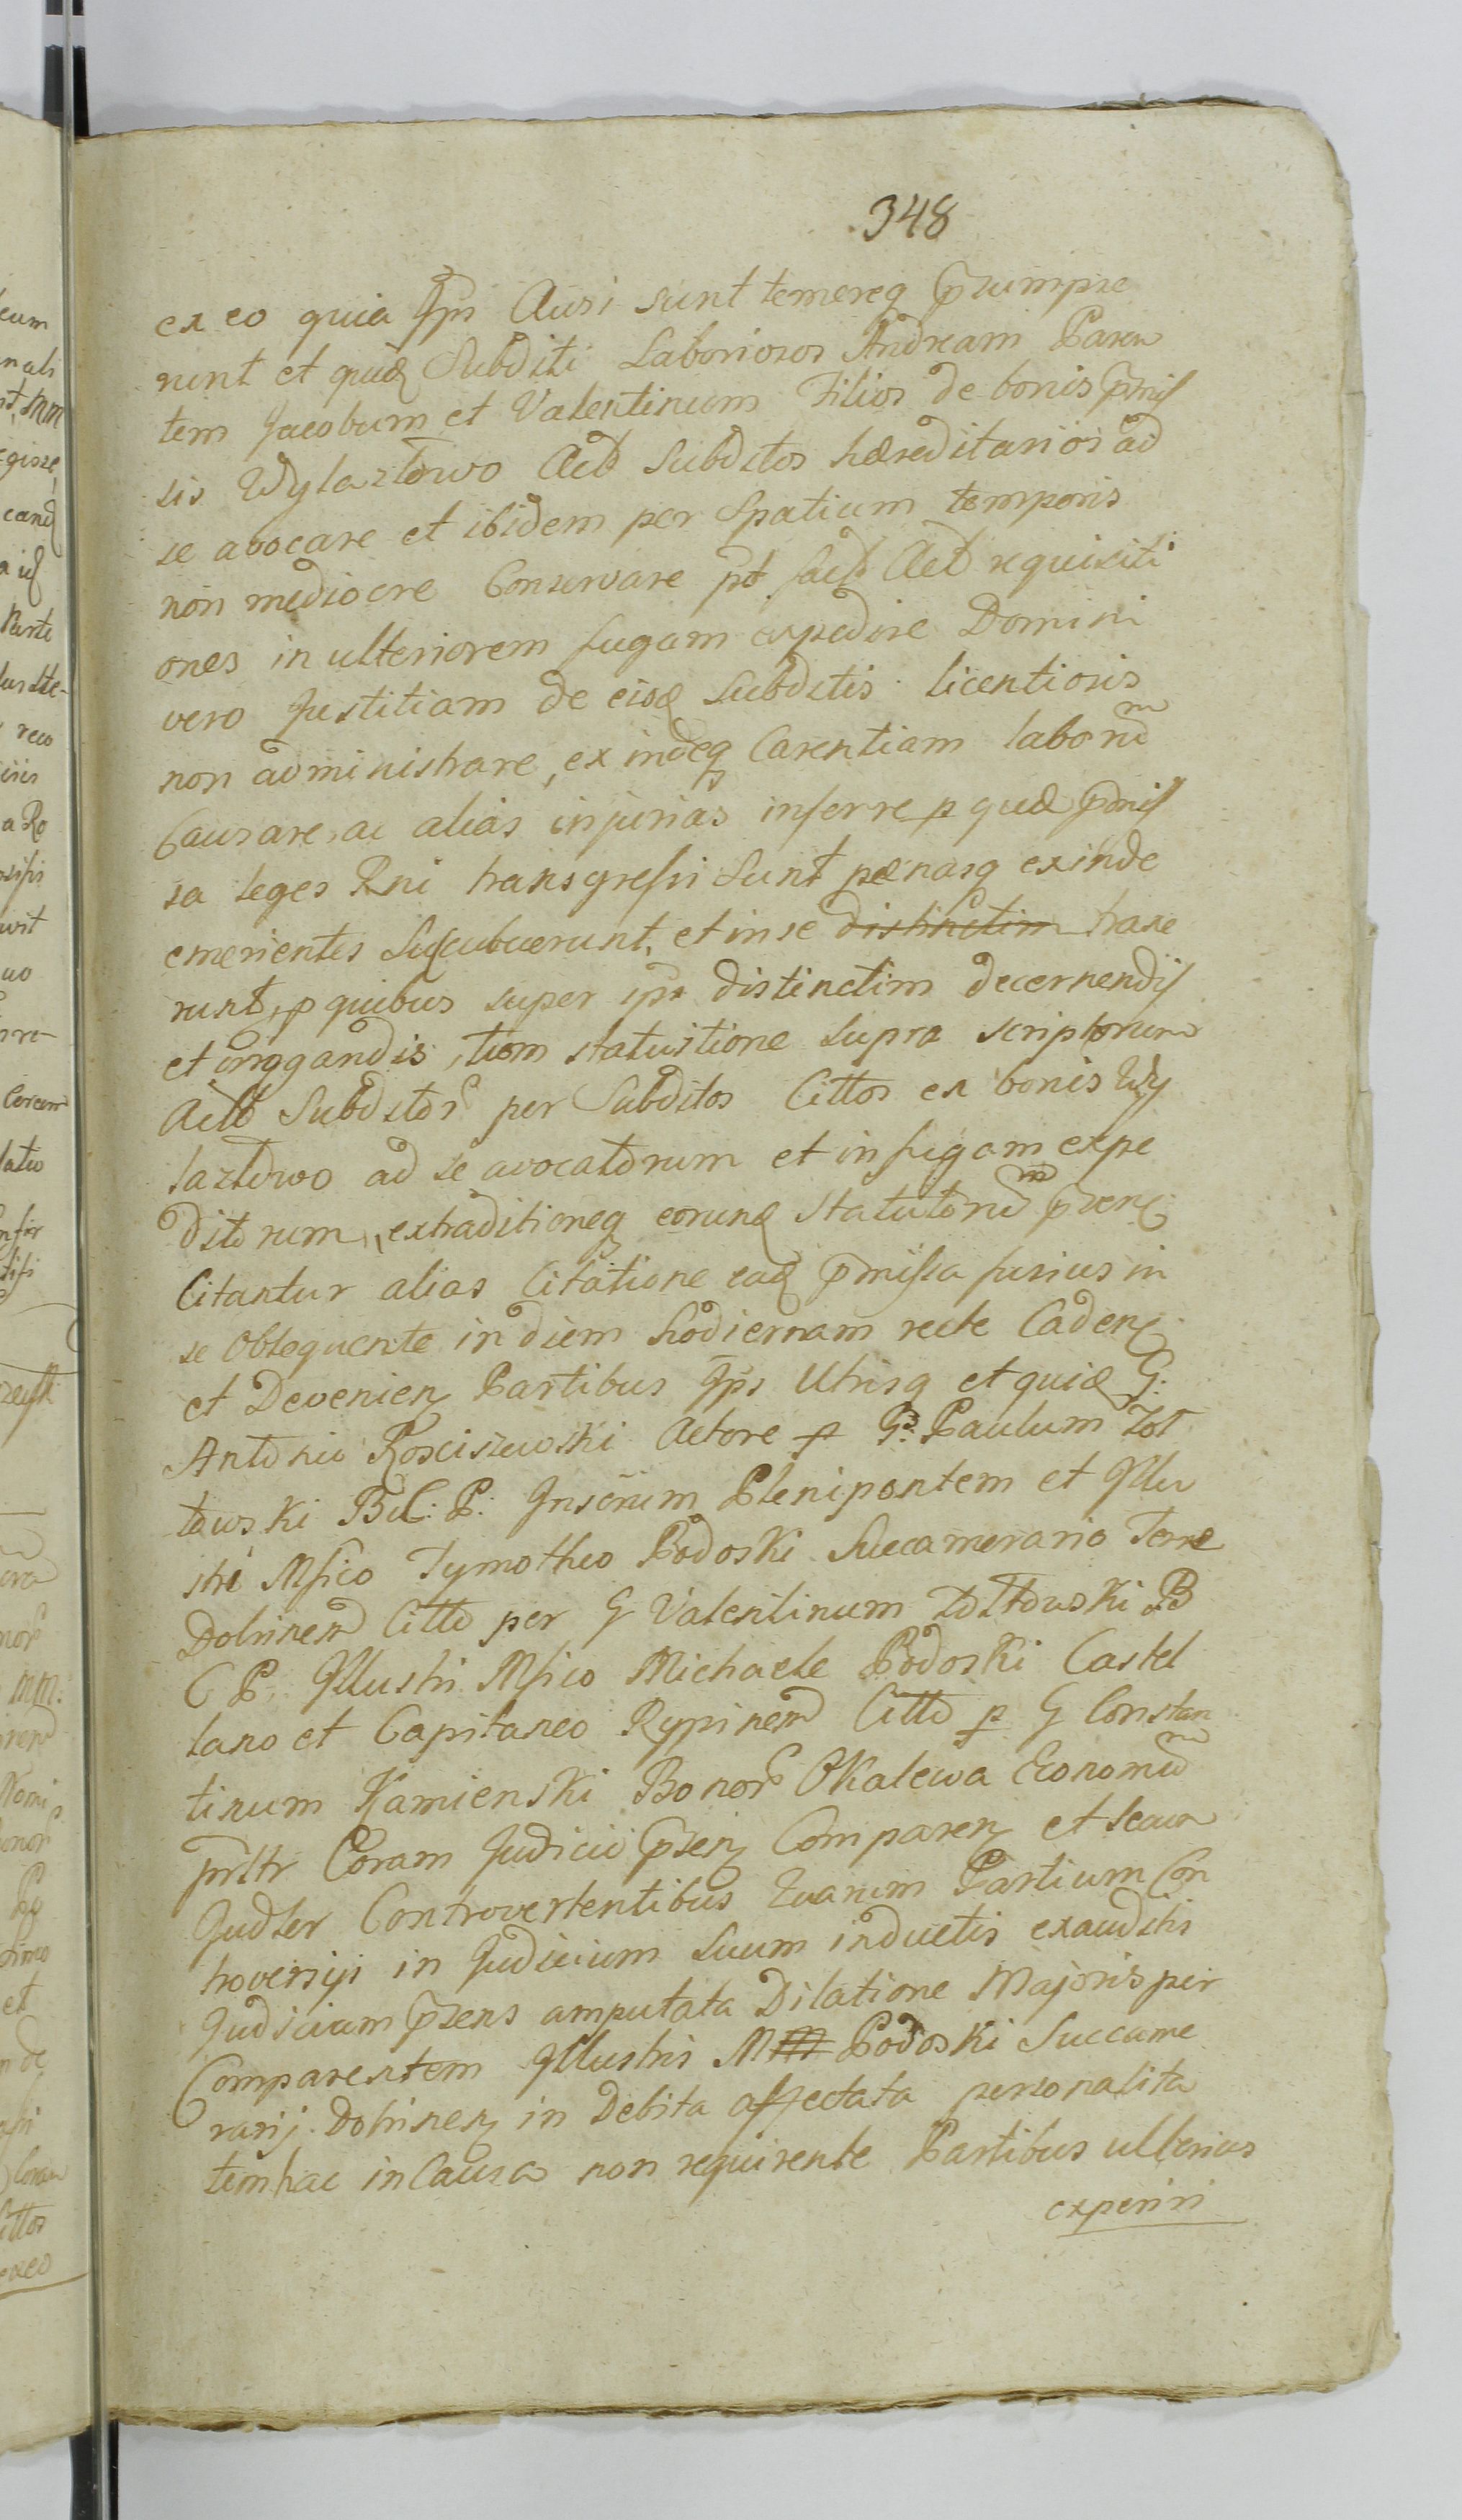 348
ex eo quia Ips Ausi sunt temereq prumpse
runt et quid Subditi Laboriosos Andream Paren
tem Jacobum et Valentinum Filios de bonis pmis
sis Wylaztowo Act Subditos hæreditarios ad
se avocare et ibidem per Spatium temporis
non mediocre Conservare pt fact Act requisiti
ones in ulteriorem fugam expedire Domini
vero Justitiam de eisd Subditis licentiosis
non administrare, ex indeq Carentiam laborum
Causare, ac alias injurias inferre p quæ pmis
sa leges Rni transgressi Sunt pænasq exinde
emerientes Succubuerunt, et in se distinctim traxe
runt, p quibus super ips distinctim decernendis
et irrogandis, tum statuitione supra scriptorum
Act Subditor per Subditos Cittos ex bonis Wy
laztowo ad se avocatorum et in fugam expe
ditorum, extraditioneq eorund Statutorum prene
Citantur alias Citatione ead pmissa fusius in
se Obloquente in diem hodiernam recte Caden
et Devenien Partibus Ips Utrisq et quid G:
Antonio Rosciszewski Actore p G: Paulum Zol
towski B: C: P: Insrium Plenipontem et Illu
stri Mfico Tymotheo Podoski Succamerario Terræ
Dobrinen Citto per G Valentinum Zoltowski B
C P, Illustri Mfico Michaele Podoski Castel
lano et Capitaneo Rypinen Citto p G Constan
tinum Kamienski Bonor Okalewa Economum
prltr Coram Judicio psen Comparen et secum
Judler Controvertentibus Quarum Partium Con
troversijs in Judicium Suum inductis exauditis
Judicium psens amputata Dilatione Majoris per
Comparentem Illustris M Podoski Succame
rarij Dobrinen in Debita affectata personalita
tem hac in Causa non requirente Partibus ulterius
experiri